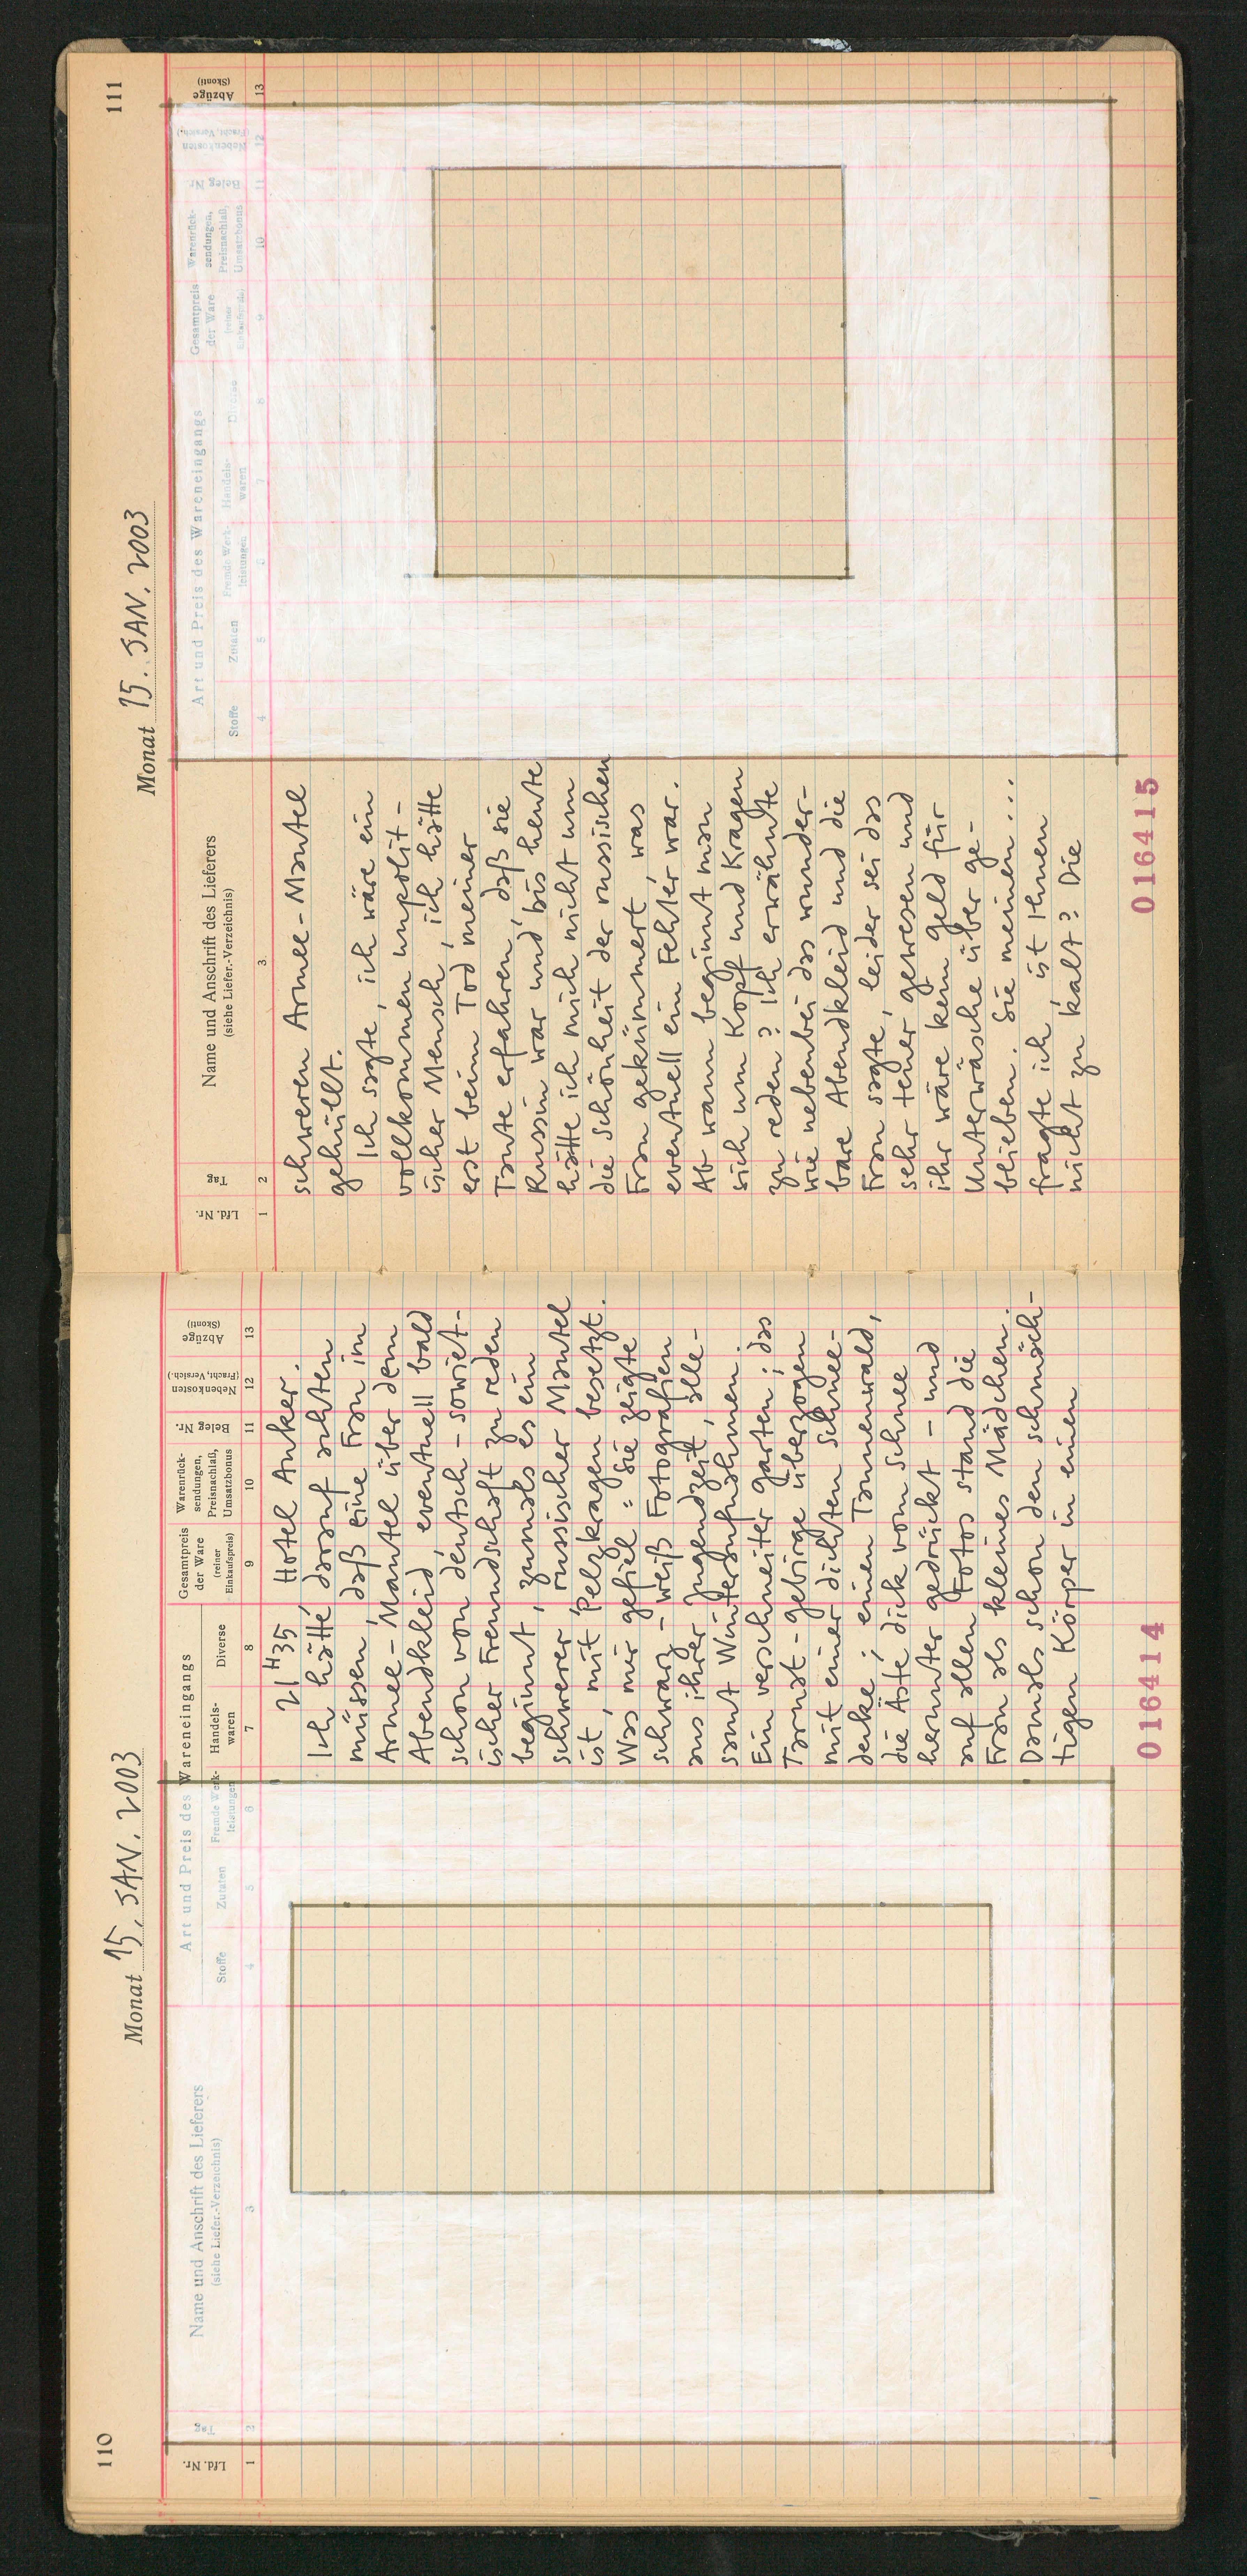 110
Monat 15. JAN. 2003
Lfd. Nr.
Tag
Name und Anschrift des Lieferers
(siehe Liefer.-Verzeichnis)
Art und Preis des Wareneingangs
Stoffe
Zutaten
Fremde Werk-
leistungen
Handels-
waren
Diverse
Gesamtpreis
der Ware
(reiner
Einkaufspreis)
Warenrück-
sendungen,
Preisnachlaß,
Umsatzbonus
Beleg Nr.
Nebenkosten
(Fracht, Versich.)
Abzüge
(Skonti)
1 2 3 4 5 6 7 8 9 10 11 12 13
21 H 35, Hotel Anker.
Ich hätte darauf achten
müssen, daß eine Frau im
Armee-Mantel über dem
Abendkleid, eventuell bald
schon von deutsch-sowjet-
ischer Freundschaft zu reden
beginnt, zumals es ein
schwerer, russischer Mantel
ist, mit Pelzkragen besetzt.
Was mir gefiel: sie zeigte
schwarz-weiß Fotografien
aus ihrer Jugendzeit, alle-
samt Winteraufnahmen.
Ein verschneiter Garten; das
Taunat-gebirge überzogen
mit einer dichten Schnee-
decke; einen Tannenwald,
die Äste dick vom Schnee
herunter gedrückt – und
auf allen Fotos stand die
Frau als kleines Mädchen.
Damals schon den schmäch-
tigen Körper in einen
016414
111
Monat 15. JAN. 2003
Lfd. Nr.
Tag
Name und Anschrift des Lieferers
(siehe Liefer.-Verzeichnis)
Art und Preis des Wareneingangs
Stoffe
Zutaten
Fremde Werk-
leistungen
Handels-
waren
Diverse
Gesamtpreis
der Ware
(reiner
Einkaufspreis)
Warenrück-
sendungen,
Preisnachlaß,
Umsatzbonus
Beleg Nr.
Nebenkosten
(Fracht, Versich.)
Abzüge
(Skonti)
1 2 3 4 5 6 7 8 9 10 11 12 13
schweren Armee-Mantel
gehüllt.
Ich sagte, ich wäre ein
vollkommen unpolit-
ischer Mensch, ich hätte
erst beim Tod meiner
Tante erfahren, daß sie
Russin war und bis heute
hätte ich mich nicht um
die Schönheit der russischen
Frau gekümmert, was
eventuell ein Fehler war.
Ab wann beginnt man
sich um Kopf und Kragen
zu reden? Ich erwähnte
wie nebenbei das wunder-
bare Abendkleid und die
Frau sagte, leider sei das
sehr teuer gewesen und
ihr wäre kein Geld für
Unterwäsche über ge-
blieben. Sie meinen...
fragte ich, ist Ihnen
nicht zu kalt? Die
016415